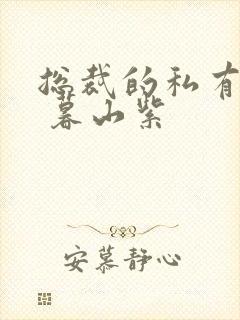 总裁的私有
暮山紫
安慕静心